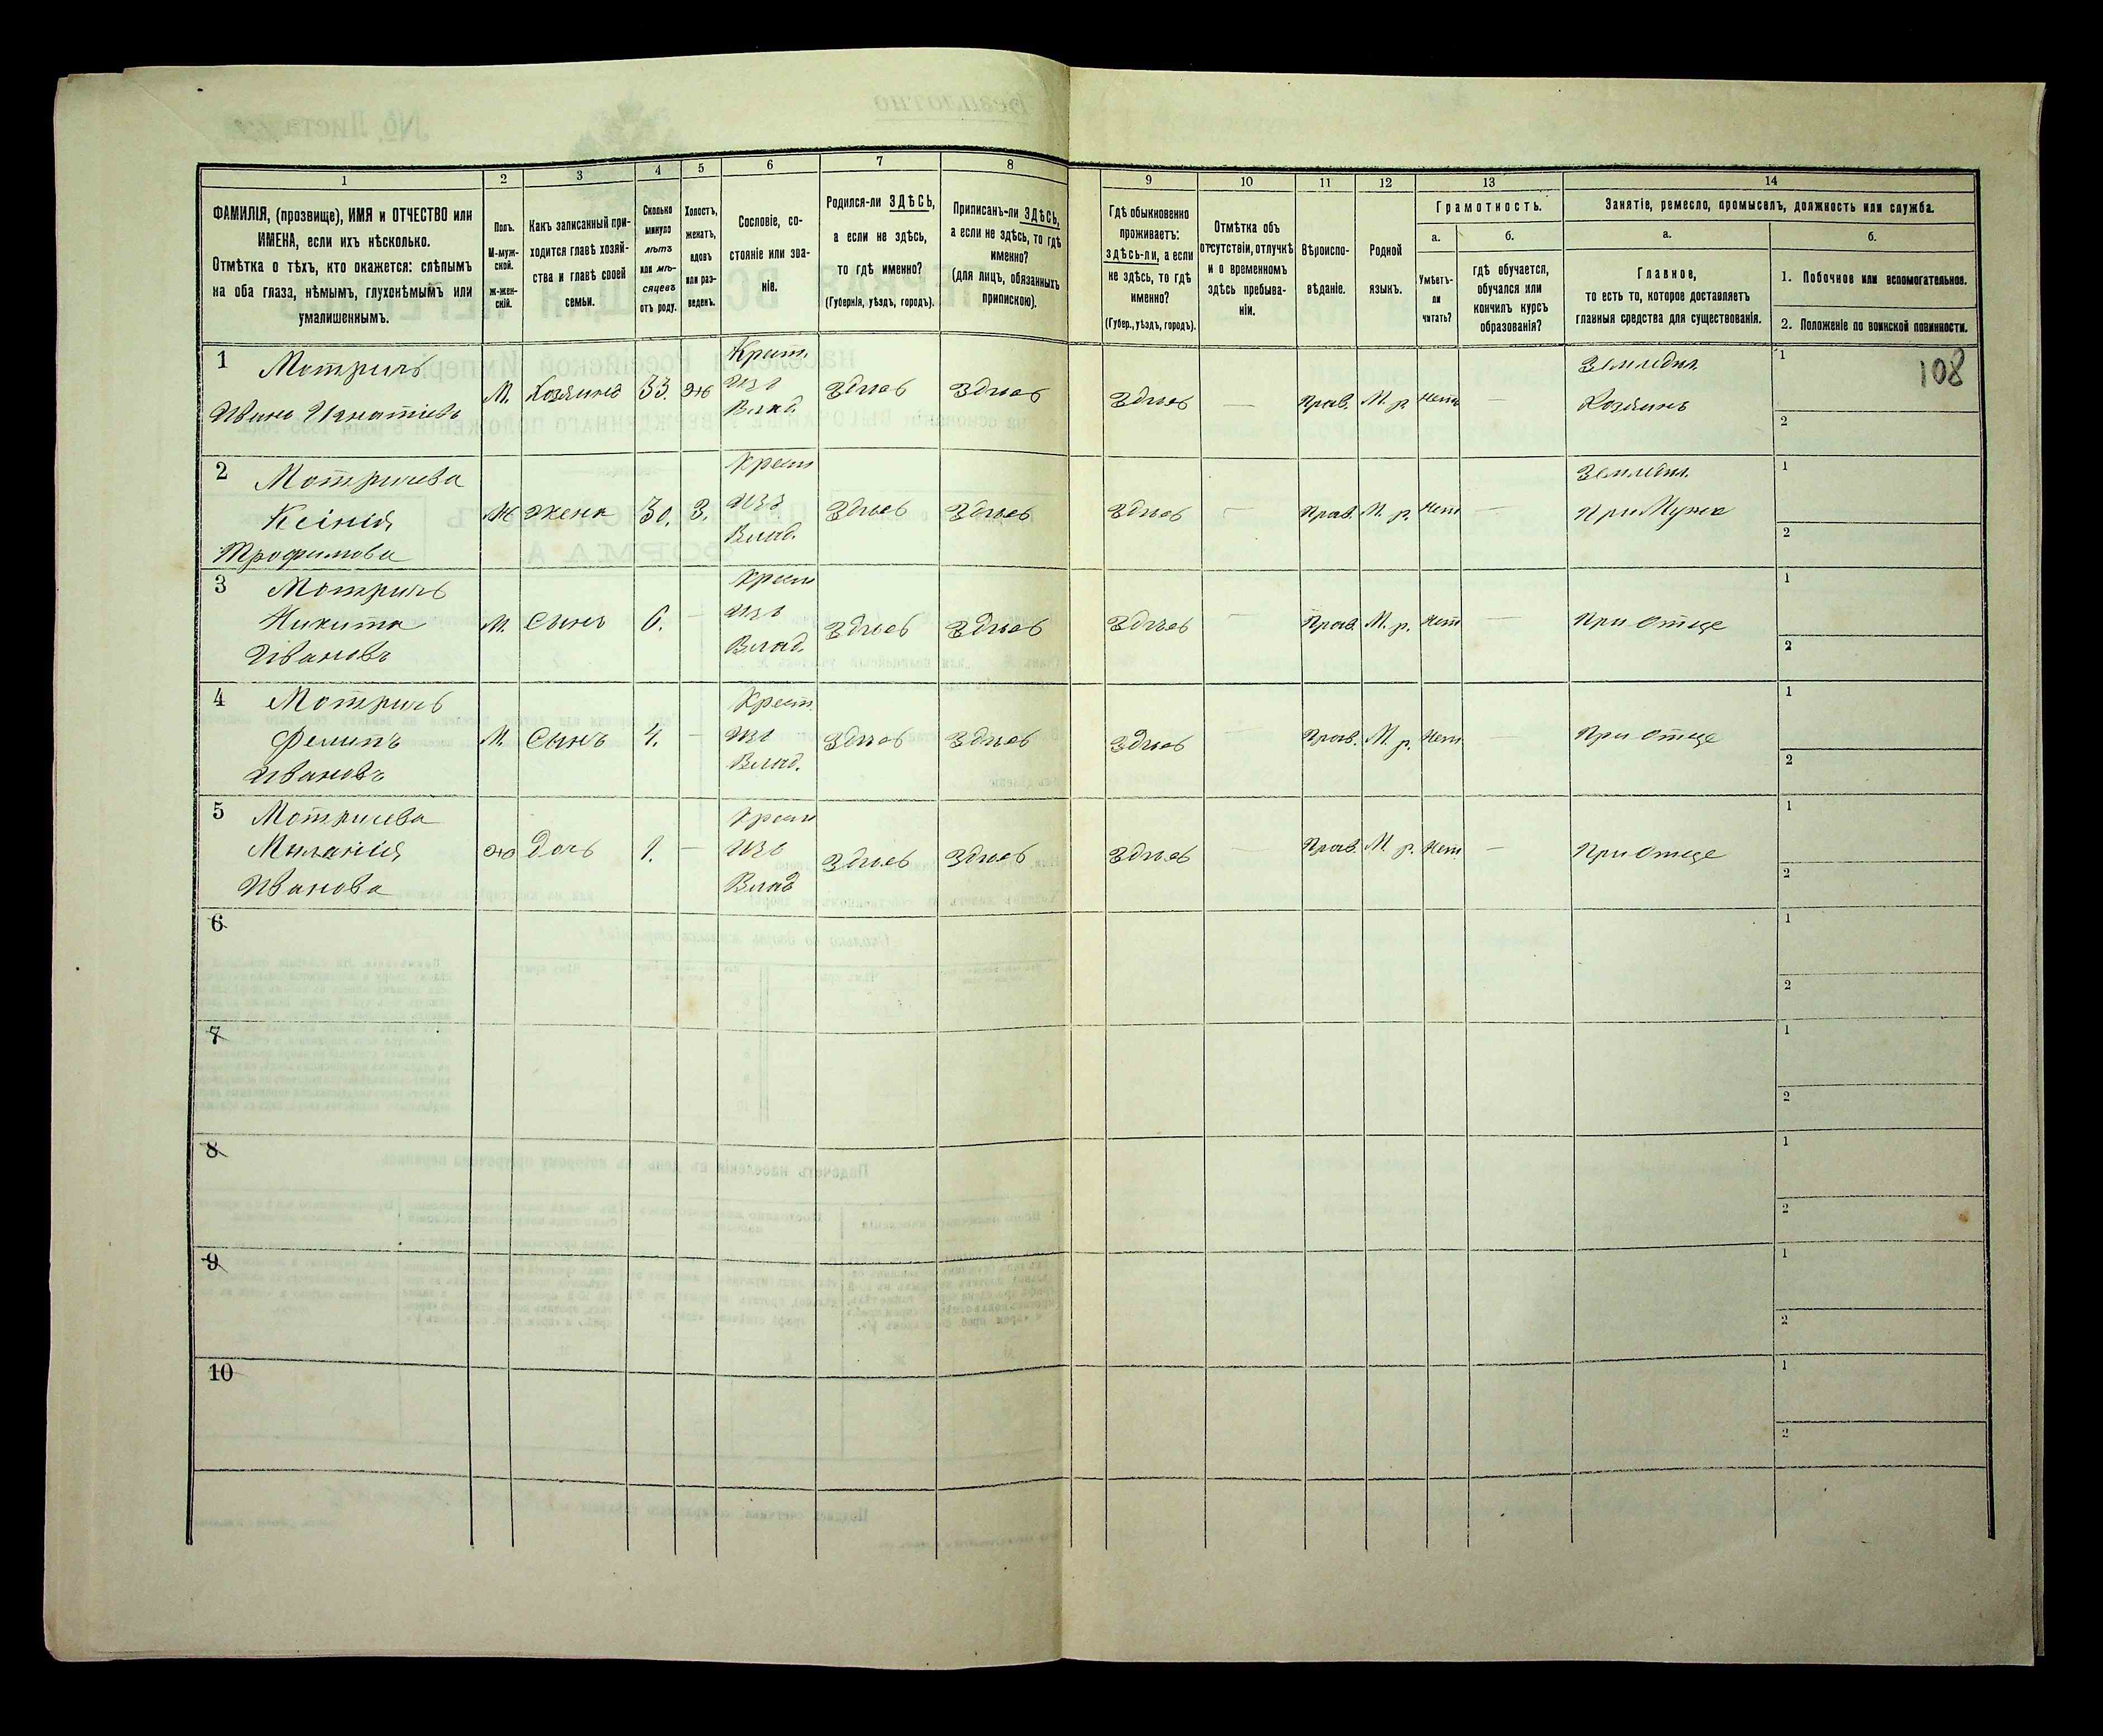 1 2 3 4 5 6 7 8 9 10 11 12 13 14
ФАМИЛІЯ, (прозвище), ИМЯ и ОТЧЕСТВО или
ИМЕНА, если ихъ нѣсколько.
Отмѣтка о тѣхъ, кто окажется: слѣпымъ
на оба глаза, нѣмымъ, глухонѣмымъ или
умалишеннымъ.
Полъ.
М-муж-
ской.
Ж-жен-
скій.
Какъ записанный при-
ходится главѣ хозяй-
ства и главѣ своей
семьи.
Сколько
минуло
лѣтъ
или мѣ-
сяцевъ
отъ роду.
Холостъ,
женатъ,
вдовъ
или раз-
веденъ.
Сословіе, со-
стояніе или зва-
ніе.
Родился-ли ЗДѢСЬ,
а если не здѣсь,
то гдѣ именно?
(Губернія, уѣздъ, городъ).
Приписанъ-ли ЗДѢСЬ,
а если не здѣсь, то гдѣ
именно?
(для лицъ, обязанныхъ
припискою).
Гдѣ обыкновенно
проживаетъ:
здѣсь-ли, а если
не здѣсь, то гдѣ
именно?
(Губер., уѣздъ, городъ).
Отмѣтка объ
отсутствіи, отлучкѣ
и о временномъ
здѣсь пребыва-
ніи.
Вѣроиспо-
вѣданіе.
Родной
языкъ.
Грамотность.
а.
Умѣетъ-
ли
читать?
б.
гдѣ обучается,
обучался или
кончилъ курсъ
образованія?
Занятіе, ремесло, промыселъ, должность или служба.
а.
Главное,
то есть то, которое доставляетъ
главныя средства для существованія.
б.
1. Побочное или вспомогательное.
2. Положеніе по воинской повинности.
108
1 Мотричъ
Иванъ Игнатіевъ
М. Хозяинъ 33. Ж
Крест.
изъ
Влад.
Здѣсь Здѣсь Здѣсь — Прав. М. р. Нетъ —
Земледѣл.
Хозяинъ
1
2
2 Мотричева
Ксінія
Трофимова
Ж Жена 30. З.
Крест
изъ
Влад.
Здѣсь Здѣсь Здѣсь — Прав. М. р. Нет —
Земледѣл.
При Мужѣ
1
2
3 Мотричъ
Никита
Ивановъ
М. Сынъ 6. —
Крест
изъ
Влад.
Здѣсь Здѣсь Здѣсь — Прав. М. р. Нет —
При Отце
1
2
4 Мотричъ
Филипъ
Ивановъ
М. Сынъ 4. —
Крест.
изъ
Влад.
Здѣсь Здѣсь Здѣсь — Прав. М. р. Нет. —
При Отце
1
2
5 Мотричева
Миланія
Иванова
Ж Дочь 1. —
Крест
изъ
Влад
Здѣсь Здѣсь Здѣсь — Прав. М. р. Нет. —
При Отце
1
2
6
1
2
7
1
2
8
1
2
9
1
2
10
1
2